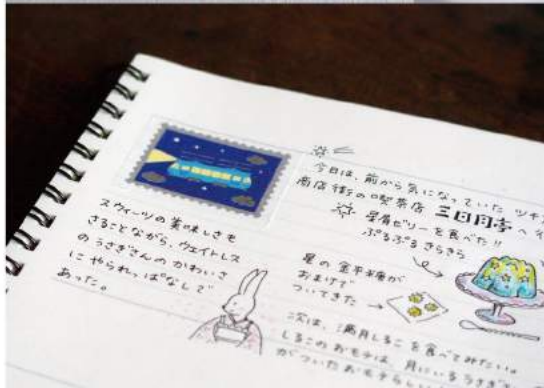 今日は、前から気になっていた ツキ
商店街の喫茶店 三日月亭 へ イ
星屑ゼリーを食べた!!
ぷるぷる きらきら
スウィーツの美味しさも
さることながら、ウェイトレス
のうさぎさんのかわいさ
にやられっぱなしで
あった。
星の金平糖が
おまけで
ついてきた
次は、満月しるこを食べてみたい。
しるこのおモチは、月にいるうさぎ
がついたおモチらしい